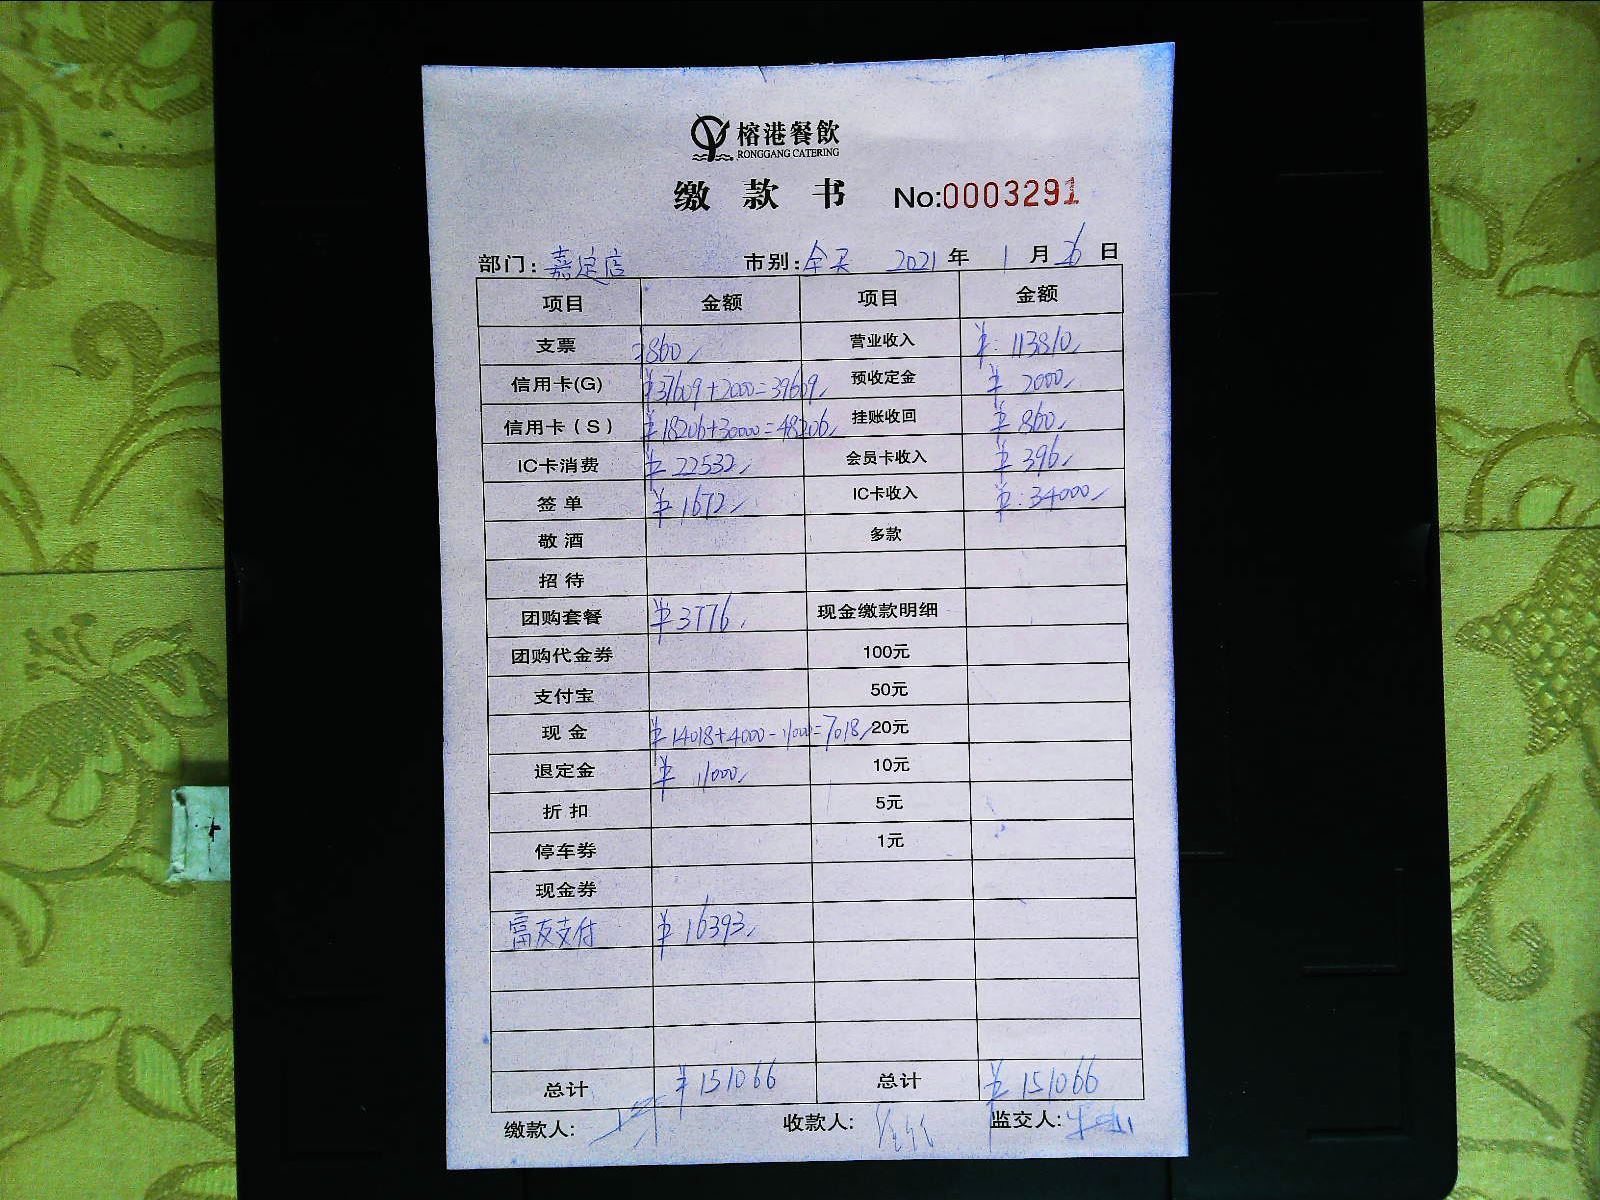 榕港餐飲
RONGGANG CATERING
缴款书 No:0003291
部门: 嘉定店 市别: 全天 2021年1月26日
项目 金额 项目 金额
支票 860 营业收入 ¥:113810
信用卡(G) ¥37609+2000=39609 预收定金 ¥2000
信用卡(S) ¥18206+30000=48206 挂账收回 ¥860
IC卡消费 ¥22532 会员卡收入 ¥396
签单 ¥1672 IC卡收入 ¥:34000
敬酒 多款
招待
团购套餐 ¥3776 现金缴款明细
团购代金券 100元
支付宝 50元
现金 ¥14018+4000-11000=7018 20元
退定金 ¥11000 10元
折扣 5元
停车券 1元
现金券
富友支付 ¥16393
总计 ¥151066 总计 ¥151066
缴款人: 收款人: 监交人: